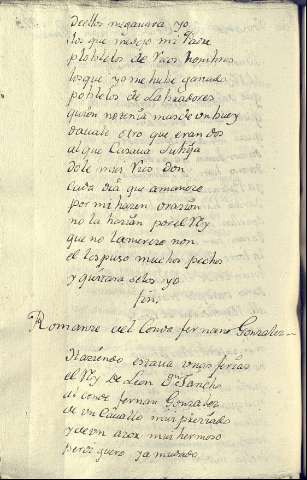 dellos me ganara yo
los que me dejo mi Padre
poblelos de Ricos hombres
los que yo me hube ganado
poblelos de Labradores
quien no tenia mas de un buey
davale otro que eran dos
al que Casava su hija
dole mui Rico Don
cada dia que amanece
por mi hacen orazion
no la hazian por el Rey
que no la merece non
el les puso muchos pechos
y quitara selos yo
fin.
Romanze del Conde fernan Gonzalez
Haciendo estava unas ferias
el Rey de Leon Dn Sancho
al conde fernan Gonzalez
de un Cavallo mui preziado
y de un azor mui hermoso